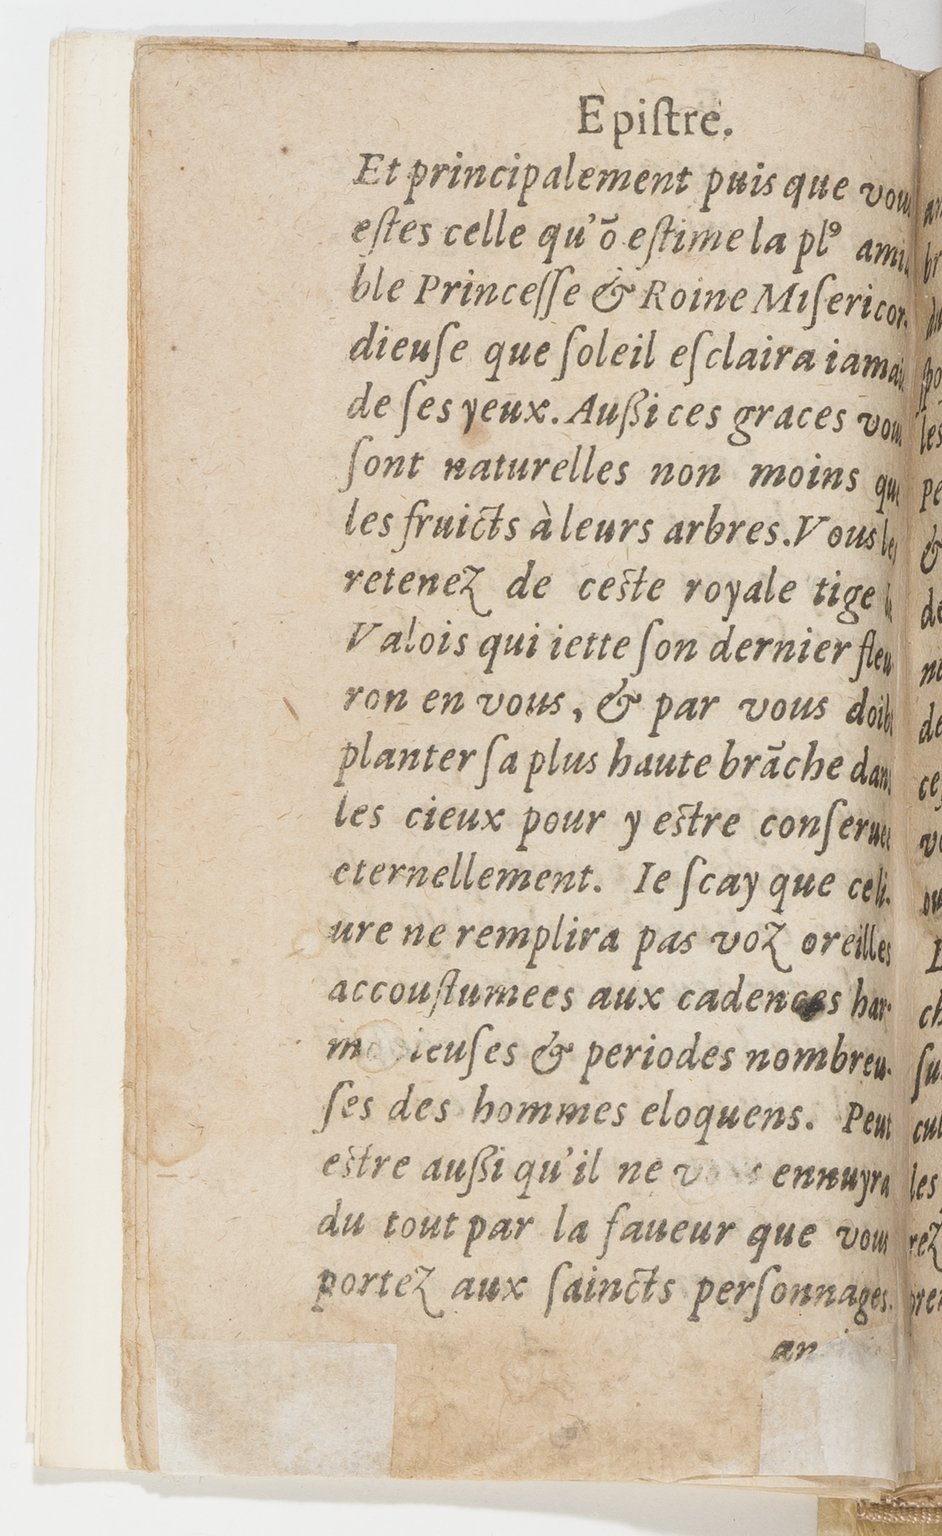 Epiſtre.
Et principalement puis que vous
eſtes celle qu'õ eſtime la plꝰ amia
ble Princeſſe & Roine Miſericor-
dieuſe que ſoleil eſclaira iamais
de ſes yeux. Außi ces graces vous
ſont naturelles non moins que
les fruicts à leurs arbres. Vous les
retenez de ceſte royale tige
Valois qui iette ſon dernier fleu
ron en vous, & par vous doibt
planter ſa plus haute brãche dans
les cieux pour y eſtre conſeruee
eternellement. Ie ſcay que ce li-
ure ne remplira pas voz oreilles
accouſtumees aux cadences har-
& periodes nombreu-
ſes des hommes eloquens. Peut
eſtre außi qu'il ne ennuyra
du tout par la faueur que vous
portez aux ſaincts perſonnages.